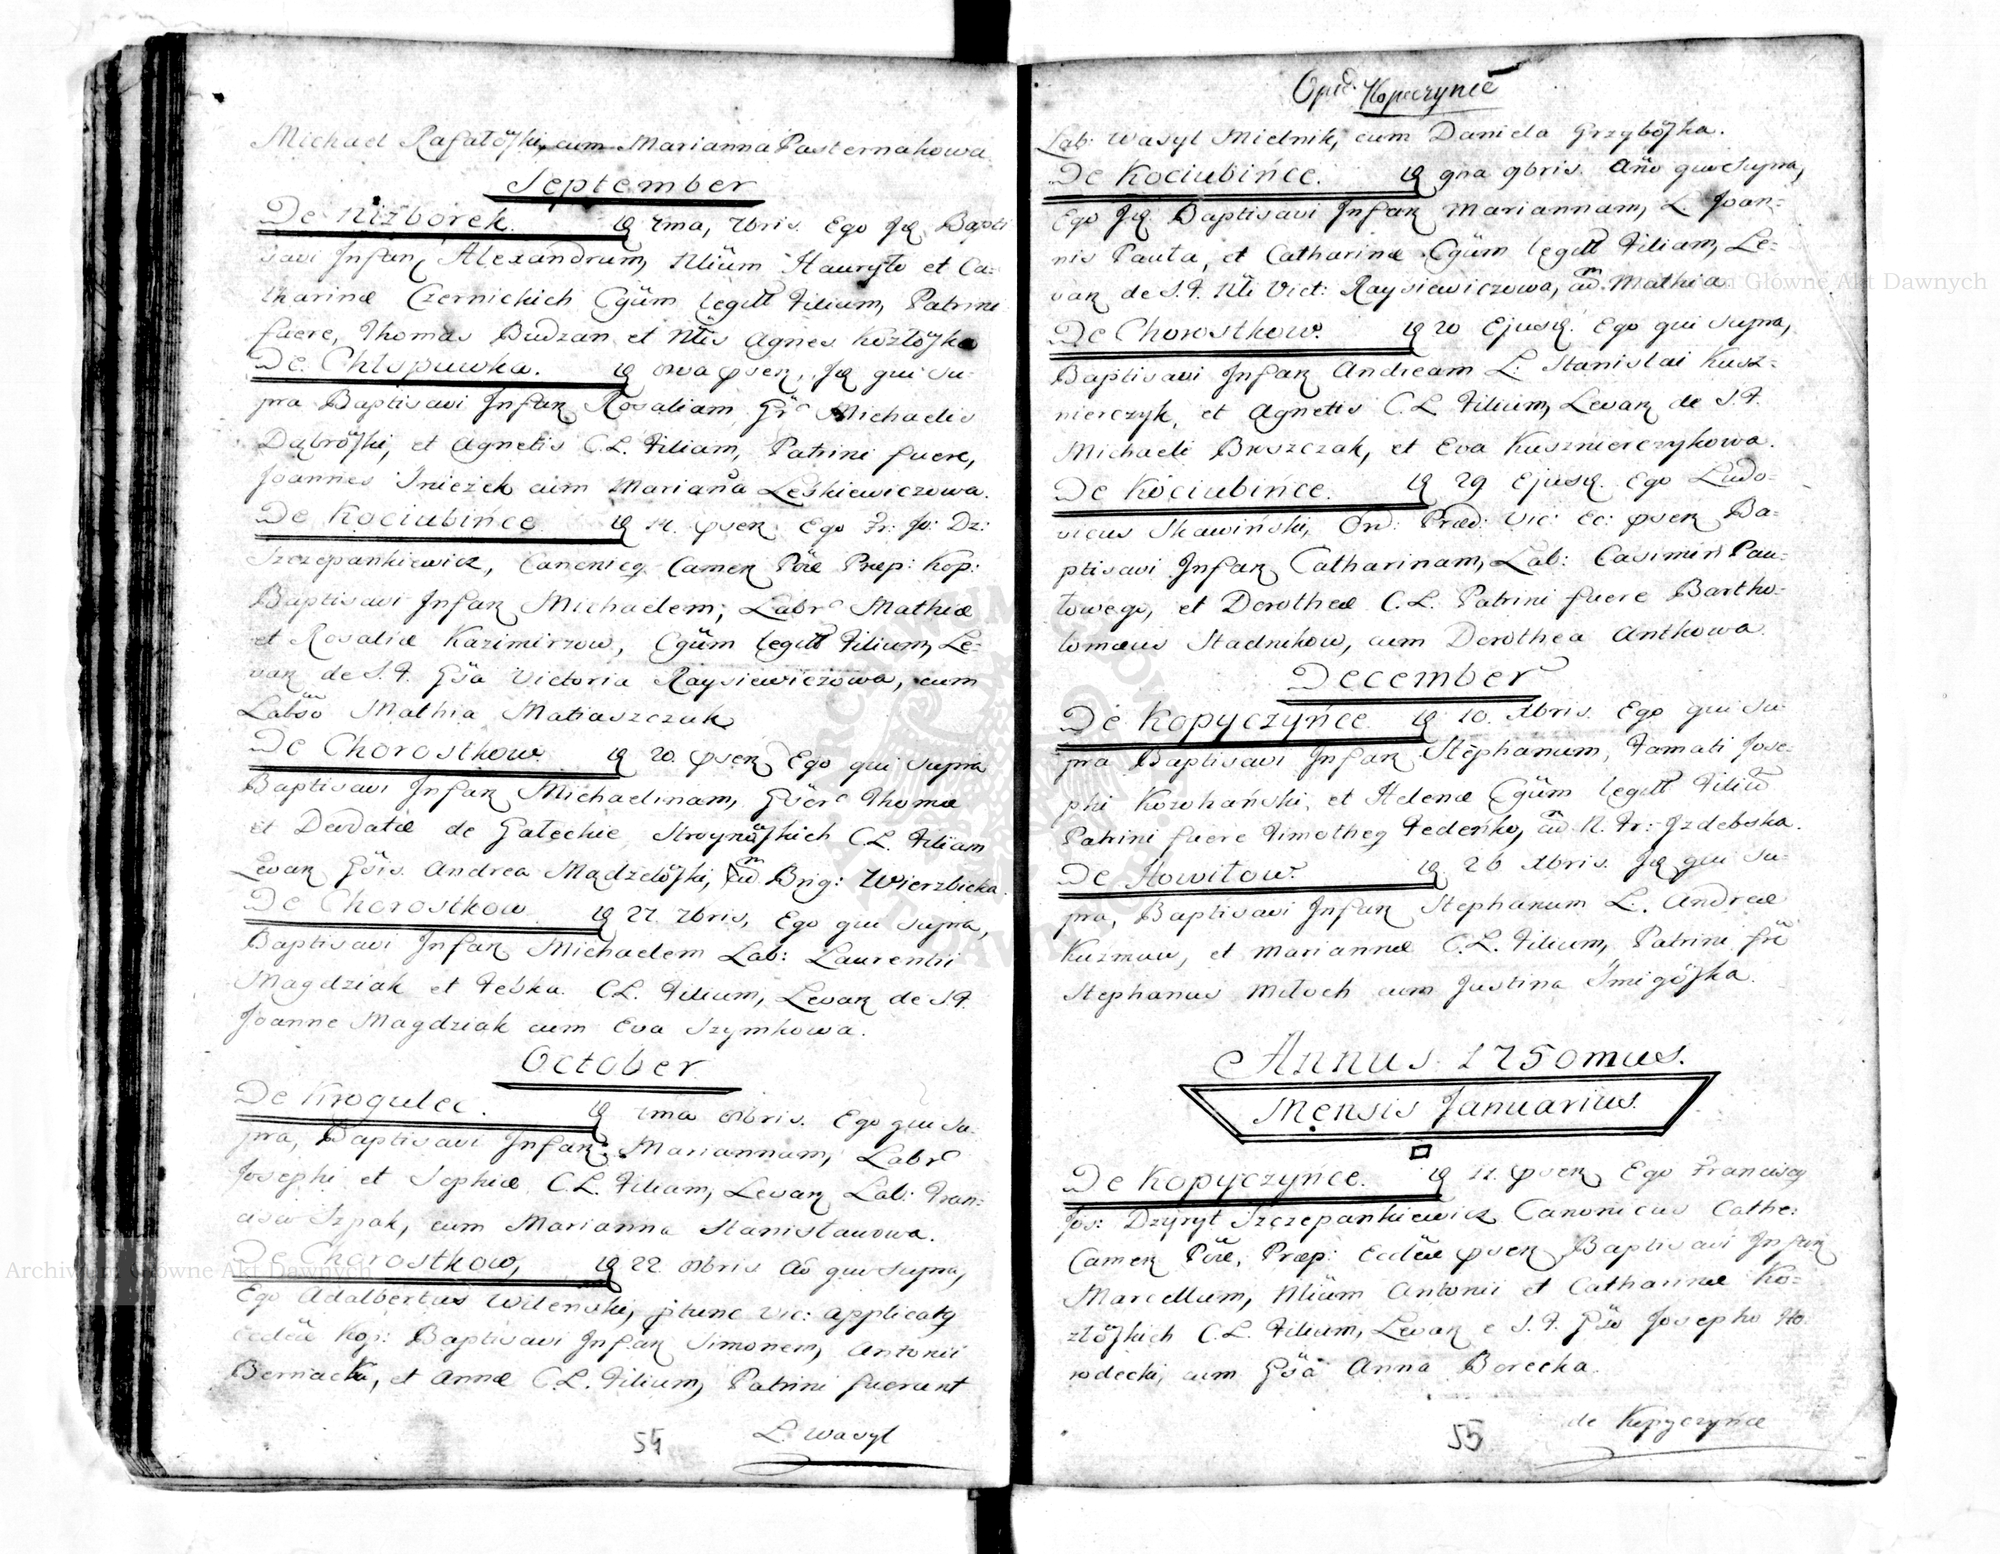 Michael Rafałőski, cum Marianna Pasternakowa.
September
De Niżborek. 19 7ma, 7bris. Ego Jq Bapti
savi Infan Alexandrum, Nlium Hauryło et Ca=
tharinæ Czernickich Cgüm legitt Filium, Patrini
fuere, Thomas Budzan et Ntis Agnes Kozłőska
De Chłopuwka. qui su=
pra Baptisavi Infan Rosaliam, Michaelis
Dąbrőski, et Agnetis C.L. Filiam, Patrini fuere,
Joannes Snieżek cum Marianña Leśkiewiczowa.
De Kociubińce. 14. Ego Fr: Jo: Dz:
Szczepankiewicz, Canonicq Camen Präe Præp: Kop:
Baptisavi Infan Michaelem, Labr Mathiæ
et Rosaliæ Kazimirzow, Cgüm legitt Filium, Le=
van de S.F. Gsa Victoria Raysiewiczowa, cum
Labso Mathia Matiaszczak
De Chorostkow. 20. Ego qui supra
Baptisavi Infan Michaelinam, Thomæ
et Deodatæ de Gałeckie Stroynőskich C.L. Filiam
Levan Gsis. Andrea Mądzelőski, cũ Brig: Wierzbicka.
De Chorostkow. 27. 7bris, Ego qui supra,
Baptisavi Infan Michaelem Lab: Laurentii
Magdziak et Feśka. C.L. Filium, Levan de S.F.
Joanne Magdziak cum Eva Szymkowa.
October
De Krogulec. 7ma 8bris. Ego qui su=
pra, Baptisavi Infan. Mariannam, Labr
Josephi et Sophiæ C.L. Filiam, Levan Lab: Fran=
cisco Szpak, cum Marianna Stanisławowa.
De Chorostkow, 22 8bris Aõ qui supra,
Ego Adalbertus Wilenski, ptunc Vic: applicatq
Kop: Baptisavi Infan Simonem, Antonii
Bernacka, et Annæ C.L. Filium, Patrini fuerunt
54
L. Wasyl
Opid. Kopeczynce
Lab: Wasyl Mielnik, cum Daniela Grzybőska.
De Kociubińce. 9na 9bris. Año quo supra,
Ego Jq. Baptisavi Infan Mariannam, L. Joan=
nis Pauta, et Catharinæ Cgüm legitt Filiam, Le=
van de S.F. Nli Vict: Raysiewiczowa, cũ. Mathia
De Chorostkow. 20 Ejusq. Ego qui supra,
Baptisavi Infan Andream L. Stanislai Kusz=
nierczyk, et Agnetis C.L. Filium, Levan de S.F.
Michaeli Broszczak, et Eva Kusznierczykowa.
De Kociubińce. 29 Ejusq. Ego Ludo=
vicus Skawiński, Ord: Præd: Vic: Ec: Ba=
ptisavi Infan Catharinam, Lab: Casimiri Pau=
towego, et Dorotheæ C.L. Patrini fuere Bartho=
lomæus Stadnikow, cum Dorothea Antkowa.
December
De Kopyczyńce. 10. Xbris. Ego qui su=
pra Baptisavi Infan Stephanum, Famati Jose=
phi Kozohański, et Helenæ Cgüm legitt Filiũ
Patrini fuere Timotheq Fedeńko, cũ N. Fr: Jzdebska.
De Howiłow. 26 Xbris. Jq qui su=
pra, Baptisavi Infan Stephanum L. Andreæ
Kuzmow, et Mariannæ C.L. Filium, Patrini
Stephanus Miłoch cum Justina Smigőska.
Annus 1750mus.
Mensis Januarius.
De Kopyczyńce. 11. Ego Franciscq
Jos: Dzyryt Szczepankiewicz Canonicus Cathe:
Camen Præ, Præp: Baptisavi Infan
Marcellum, Nlium Antonii et Catharinæ Ko=
złőskich C.L. Filium, Levan e S.F. Gso Josepho Ho
rodecki, cum Gsa Anna Borecka.
de Kopyczyńce
55
Archiwum Główne Akt Dawnych
Archiwum Główne Akt Dawnych